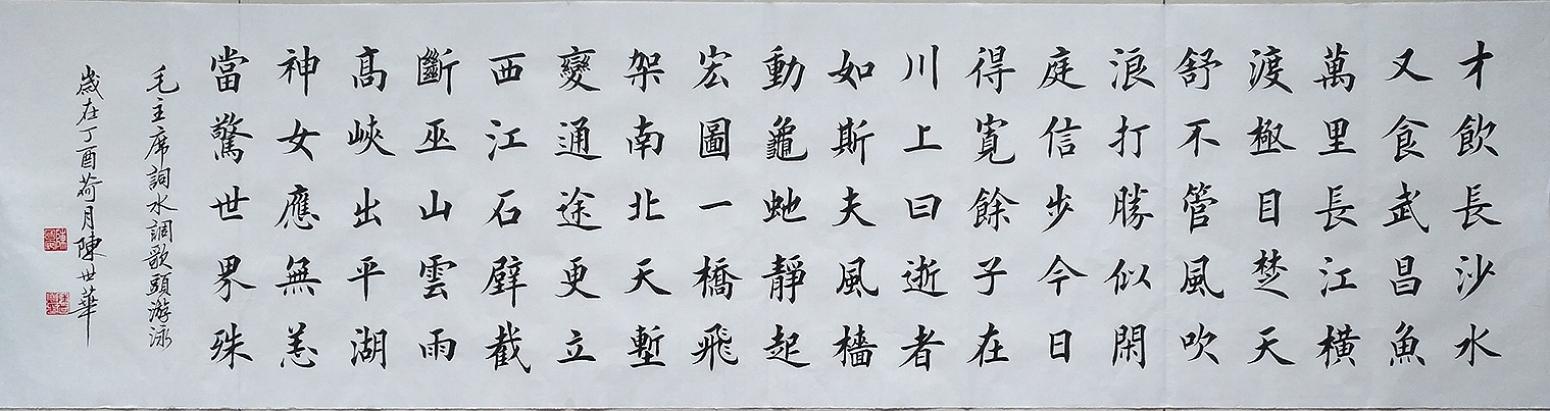 才飲長沙水
又食武昌魚
萬里長江橫
渡極目楚天
舒不管風吹
浪打勝似閑
庭信步今日
得寬餘子在
川上曰逝者
如斯夫風檣
動龜虵靜起
宏圖一橋飛
架南北天塹
變通途更立
西江石壁截
斷巫山雲雨
高峽出平湖
神女應無恙
當驚世界殊
毛主席詞水調歌頭游泳
歲在丁酉荷月陳世華